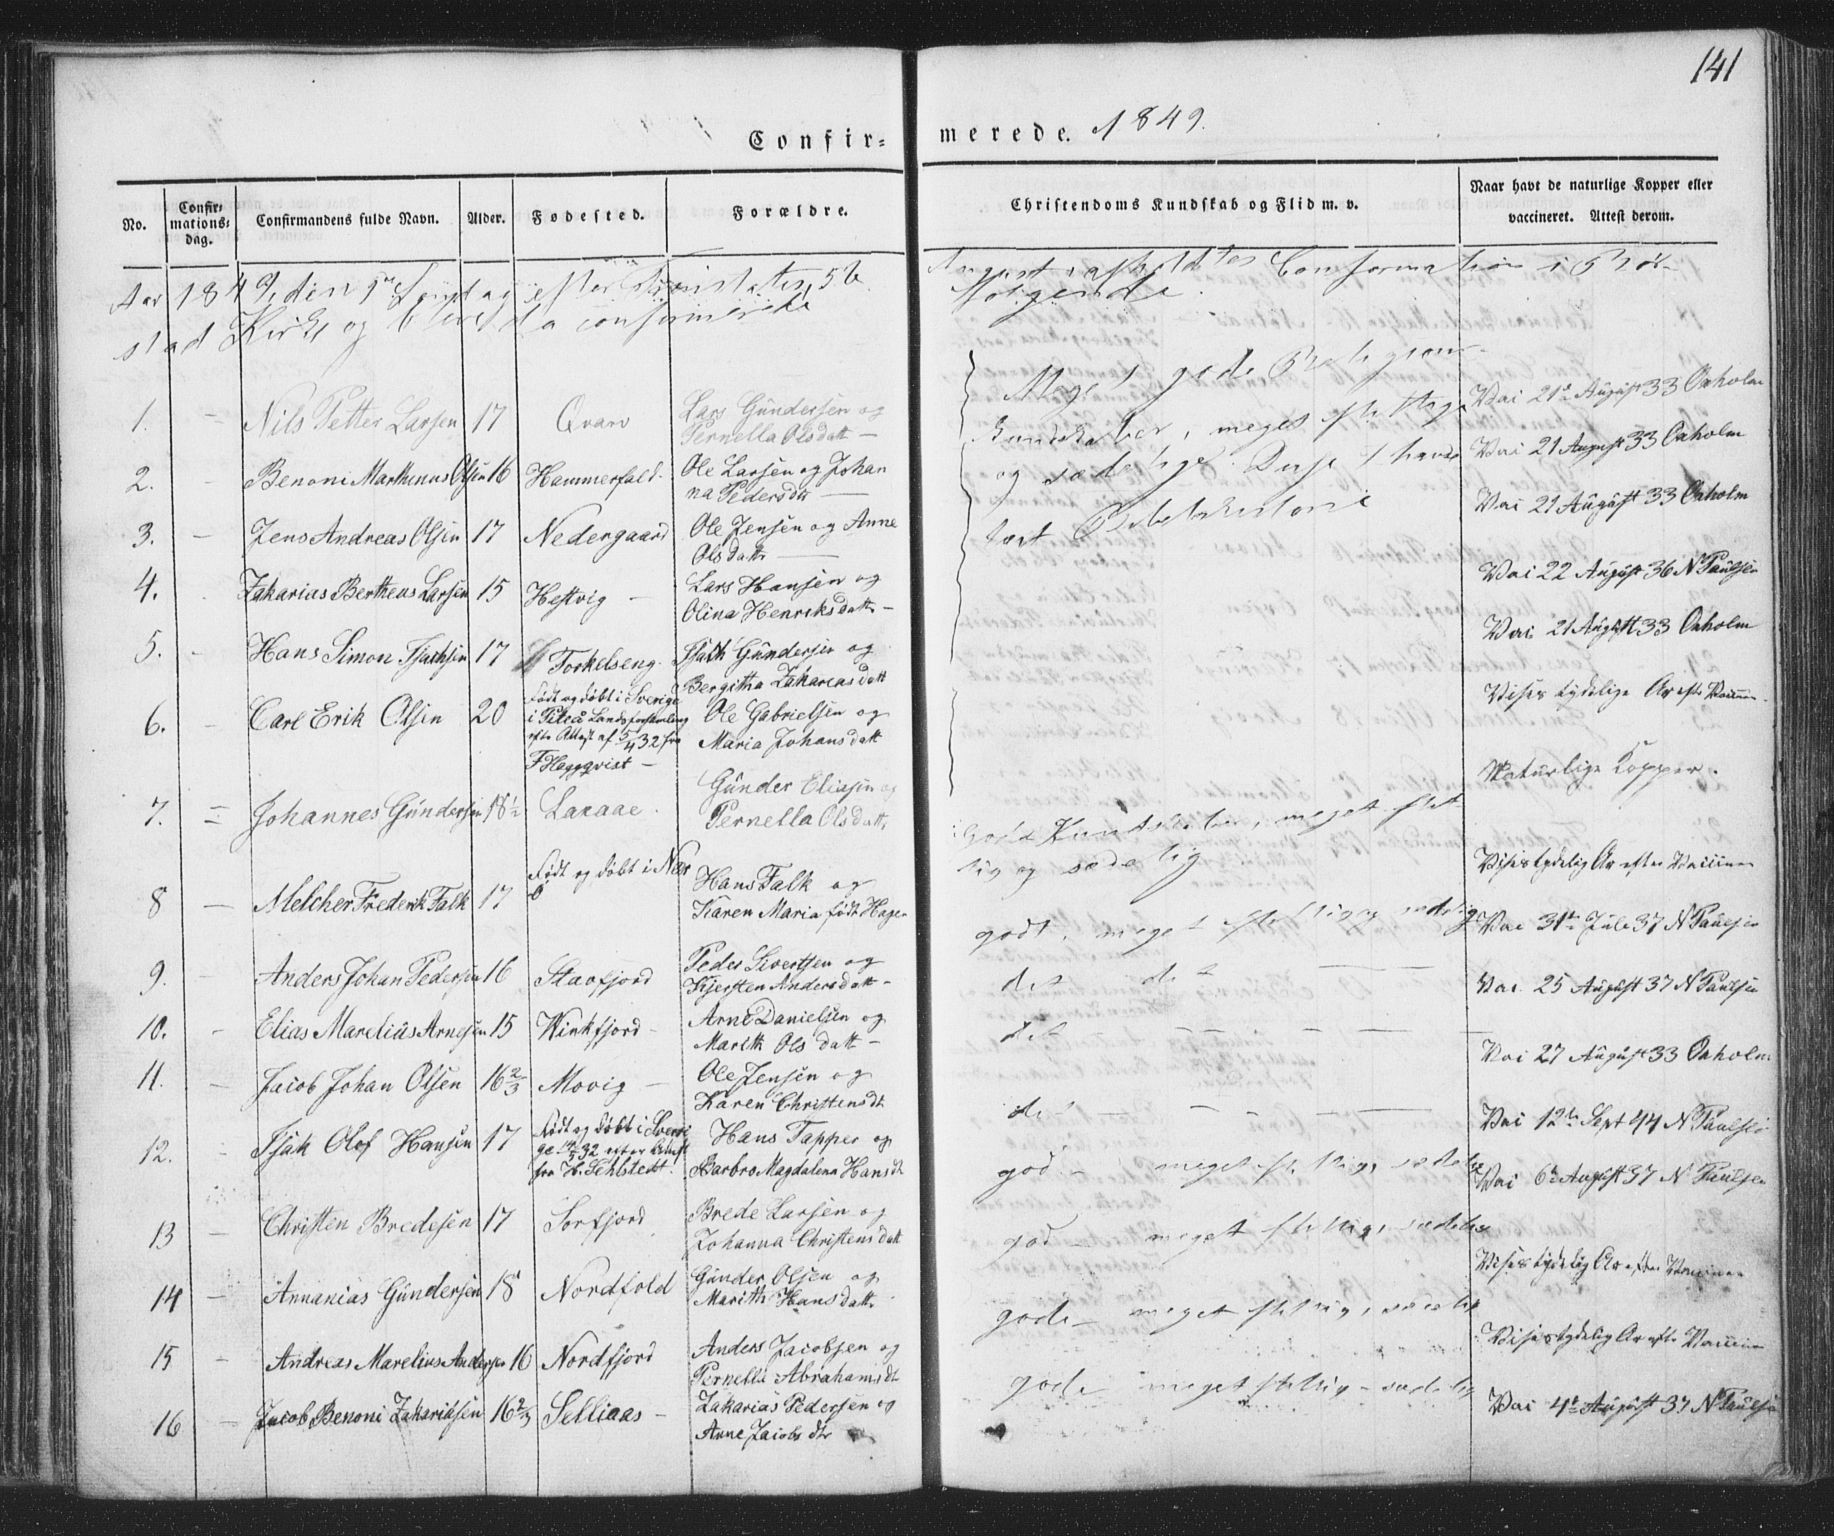 141
Confir- merede. 1849.
No. Confir-mations-dag. Confirmandens fulde Navn. Alder. Fødested. Forældre. Christendoms Kundskab og Flid m. v. Naar havt de naturlige Kopper eller vaccineret. Attest derom.
Aar 1849, den Søndag efter Trinitatis, 5te August afholdtes Confirmation i
stad Kirke og bleve da confirmerede Følgende.
1. Nils Petter Larsen 17 Qvarv Lars Gündersen og Pernella Olsdatt Vac 21de August 33 Oxholm
2. Benoni Marthinus Olsen 16 Hammerfald Ole Larsen og Johanna Pedersdtt Vac 21 August 33 Oxholm
3. Jens Andreas Olsen 17 Nedergaard Ole Jensen og Anne Olsdatt Vac 21 August 33 Oxholm
4. Zakarias Bertheus Larsen 15 Hestvig Lars Hansen og Olina Henriksdatt Vac 22 August 36 N Paulsen
Meget gode Religions
kundskaber, meget flittige
og sædelige. Disse have
læst Bibelhistorie
5. Hans Simon Isachsen 17 Torkelseng Isach Gündersen og Bergitha Zakariasdatt Vac 21 August 33 Oxholm
6. Carl Erik Olsen 20 Født og døbt i Sverige i Piteå Landsforsamling efter Attest af 5/4 32 fra F Heggqvist Ole Gabrielsen og Maria Johansdatt Vises tydelige Ar efter Vaccinen
7. Johannes Gündersen 18½ Laxaae Günder Eliasen og Pernella Olsdatt Naturlige Kopper.
8 Melcher Frederik Falk 17 Født og døbt i Nærö Hans Falk og Karen Maria født Hagen gode Kundskaber, meget flittig og sædelig Vises tydelig Ar efter Vaccinen
9. Anders Johan Pedersen 16 Stavfjord Peder Sivertsen og Kjersten Andersdatt godt, meget flittig og sædelig Vac 31te Jule 37 N Paulsen
10. Elias Marelius Arnesen 15 Winkfjord Arne Danielsen og Mareth Olsdatt det det Vac 25 August 37 N Paulsen
11. Jacob Johan Olsen 16 2/3 Movig Ole Jensen og Karen Christensdt det Vac 27 August 33 Oxholm
12. Isak Olof Hansen 17 Født og døbt i Sverige 14/5 32 efter Attest fra H. Sehlstedt. Hans Tapper og Barbro Magdalena Hansdt det Vac 12te Sept 44 N Paulsen
13 Christen Bredesen 17 Sørfjord Brede Larsen og Johanna Christensdatt god meget flittig, sædelig Vac 6te August 37 N Paulsen
14 Annanias Gündersen 18 Nordfold Günder Olsen og Marith Hansdatt god meget flittig, sædelig Vises tydelig Ar efter Vaccinen
15 Andreas Marelius Andersen 16 Nordfjord Anders Jacobsen og Pernella Abrahamsdt gode meget flittig, sædelig Vises tydelig Ar efter Vaccinen
16 Jacob Benoni Zakariasen 16 2/3 Selliaas Zakarias Pedersen og Anne Jacobsdtr gode meget flittig sædelig Vac 4de August 37 N Paulsen